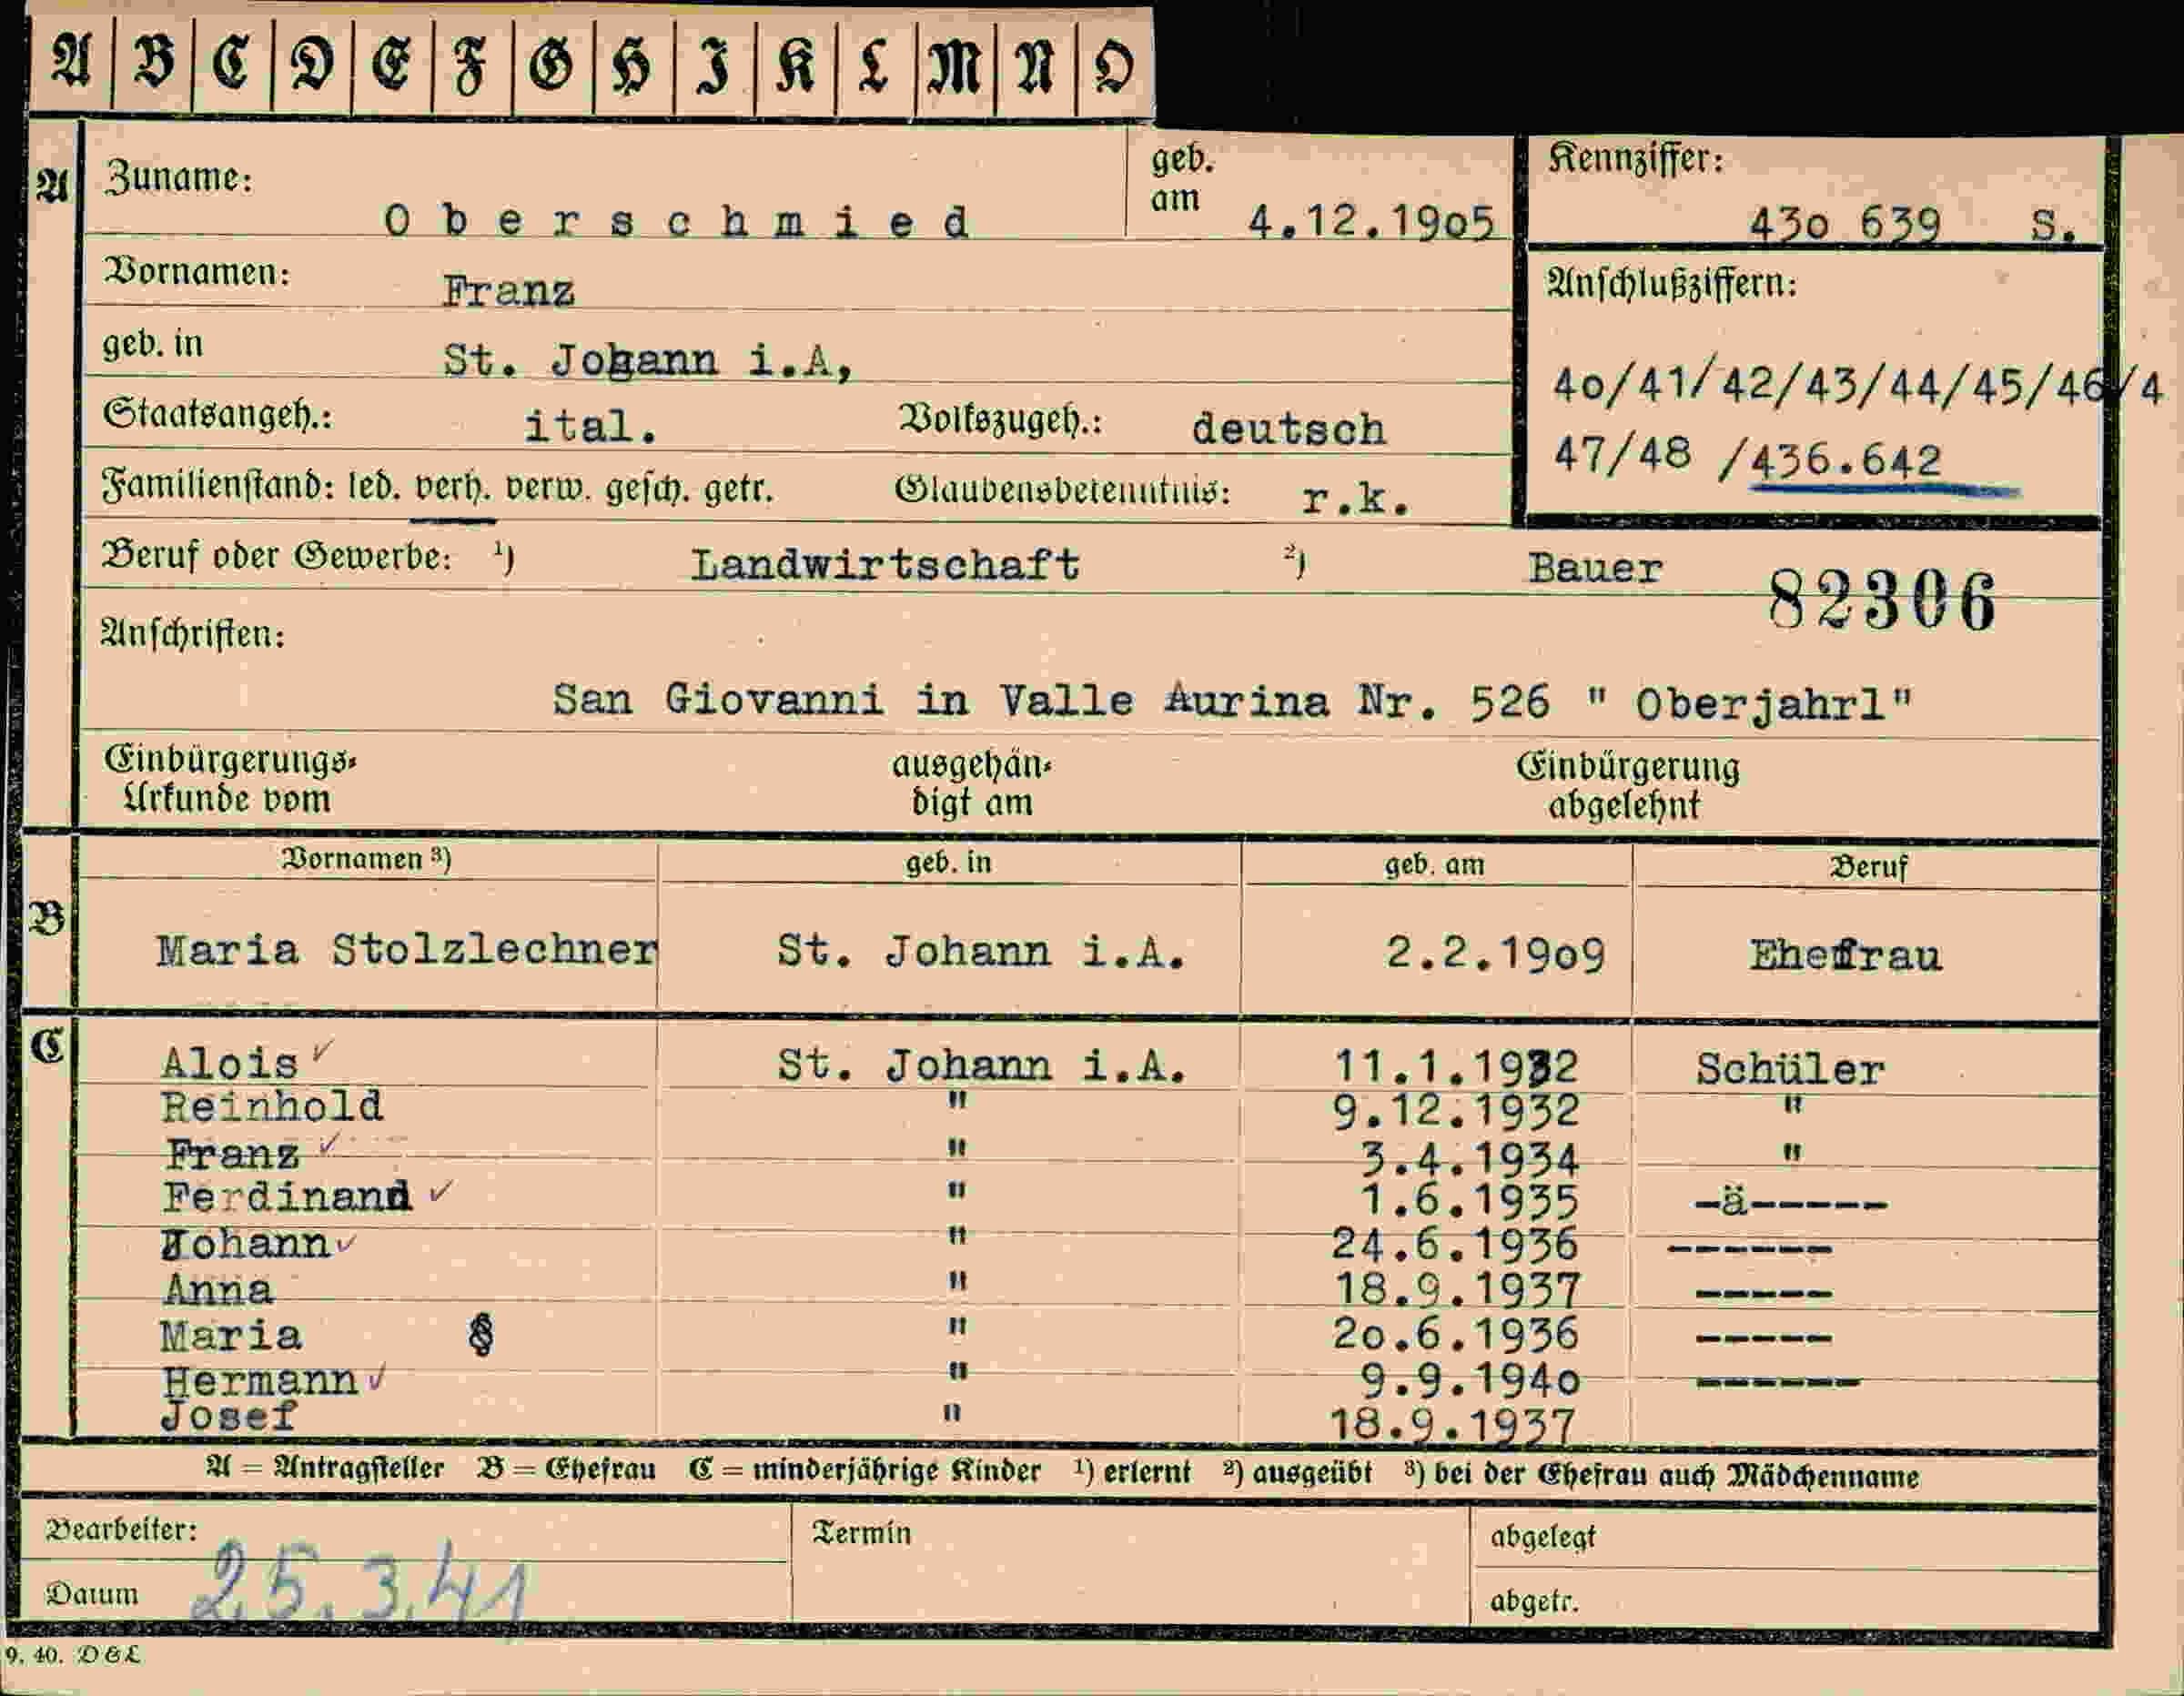 A B C D E F G H I K L M N O
A Zuname: Oberschmied geb. am 4.12.1905 Kennziffer: 430 639 S.
Vornamen: Franz Anschlußziffern:
geb. in St. Johann i.A,
40/41/42/43/44/45/46/4
Staatsangeh.: ital. Volkszugeh.: deutsch
47/48 /436.642
Familienstand: led. verh. verw. gesch. getr. Glaubensbekenntnis: r.k.
Beruf oder Gewerbe: 1) Landwirtschaft 2) Bauer
82306
Anschriften:
San Giovanni in Valle Aurina Nr. 526 " Oberjahrl"
Einbürgerungs- ausgehän- Einbürgerung
Urkunde vom digt am abgelehnt
Vornamen 3) geb. in geb. am Beruf
B Maria Stolzlechner St. Johann i.A. 2.2.1909 Ehefrau
C Alois ✓ St. Johann i.A. 11.1.1932 Schüler
Reinhold " 9.12.1932 "
Franz ✓ " 3.4.1934 "
Ferdinand ✓ " 1.6.1935 -ä-----
Johann ✓ " 24.6.1936 ------
Anna " 18.9.1937 -----
Maria § " 20.6.1936 -----
Hermann ✓ " 9.9.1940 ------
Josef " 18.9.1937
A = Antragsteller B = Ehefrau C = minderjährige Kinder 1) erlernt 2) ausgeübt 3) bei der Ehefrau auch Mädchenname
Bearbeiter: Termin abgelegt
Datum 25.3.41 abgetr.
9. 40. D & L